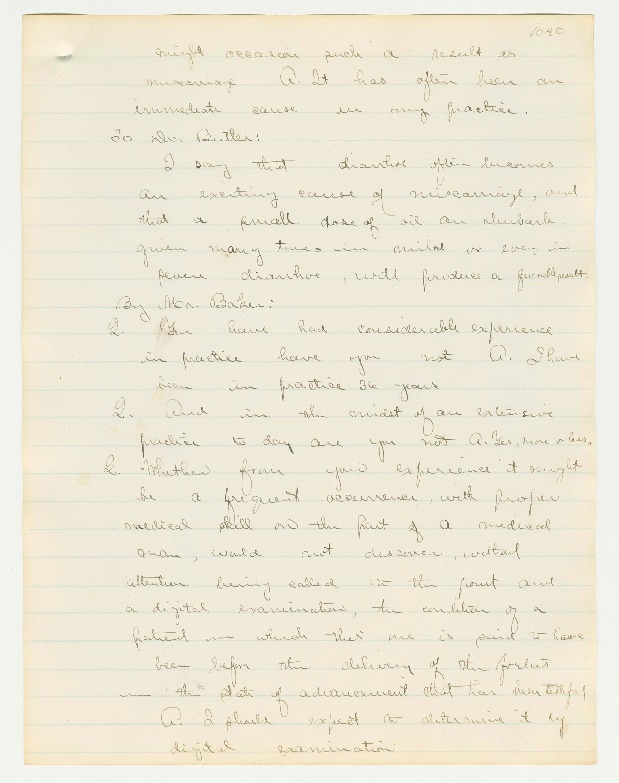 1040
might occasion such a result as
miscarriage A. It has often been an
immediate cause in my practice.
To Dr. Butler:
I say that diarrhoe often becomes
an exciting cause of miscarriage, and
that a small dose of oil an rhubarb
given many times in mild or even in
severe diarrhoe, will produce a favorable result
By Mr. Baker:
Q. You have had considerable experience
in practice have you not A. I have
been in practice 36 years
Q. And in the midst of an extensive
practice to day are you not A. Yes, more or less.
Q. Whether from your experience it might
be a frequent occurrence, with proper
medical skill on the part of a medical
man, would not discover, without
attention being called to the point and
a digital examination, the condition of a
patient in which this one is said to have
been before the delivery of the foetus
in the state of advancement that has been testified
A. I should expect to determine it by
digital examination